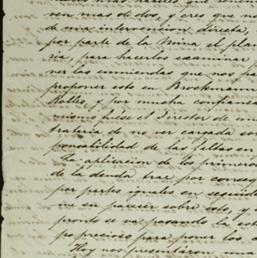 ven mas de dos, y creo que no
de una intervencion directa,
por parte de la
ria, para hacerlos examinar
ver las enmiendas que nos pa
proponer esto en Brockmann
y por mucha confianza
mismo fuese el Director de
trataria de no ver cargada
ponsabilidad de las faltas en
La aplicacion de los primeros
de la deuda trae por conseg
por partes iguales en seguida
me su parecer sobre esto, y
pronto se va pasando la esta
po precioso para poner los
Hoy nos presentaron una